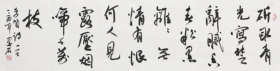 斫取青
光寫楚
辭膩香
春粉黑
離〻無
情有恨
何人見
露壓烟
啼千萬
枝